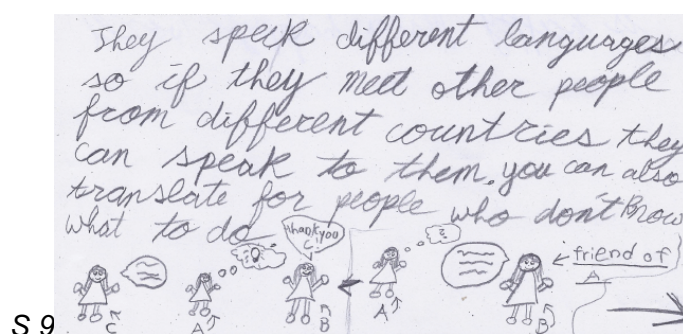 They speek different languages
so if they meet other people
from different countries they
can speak to them. you can also
translate for people who don't know
what to do
thankyou
C!
friend of
A
C
A
B
A
B
S 9